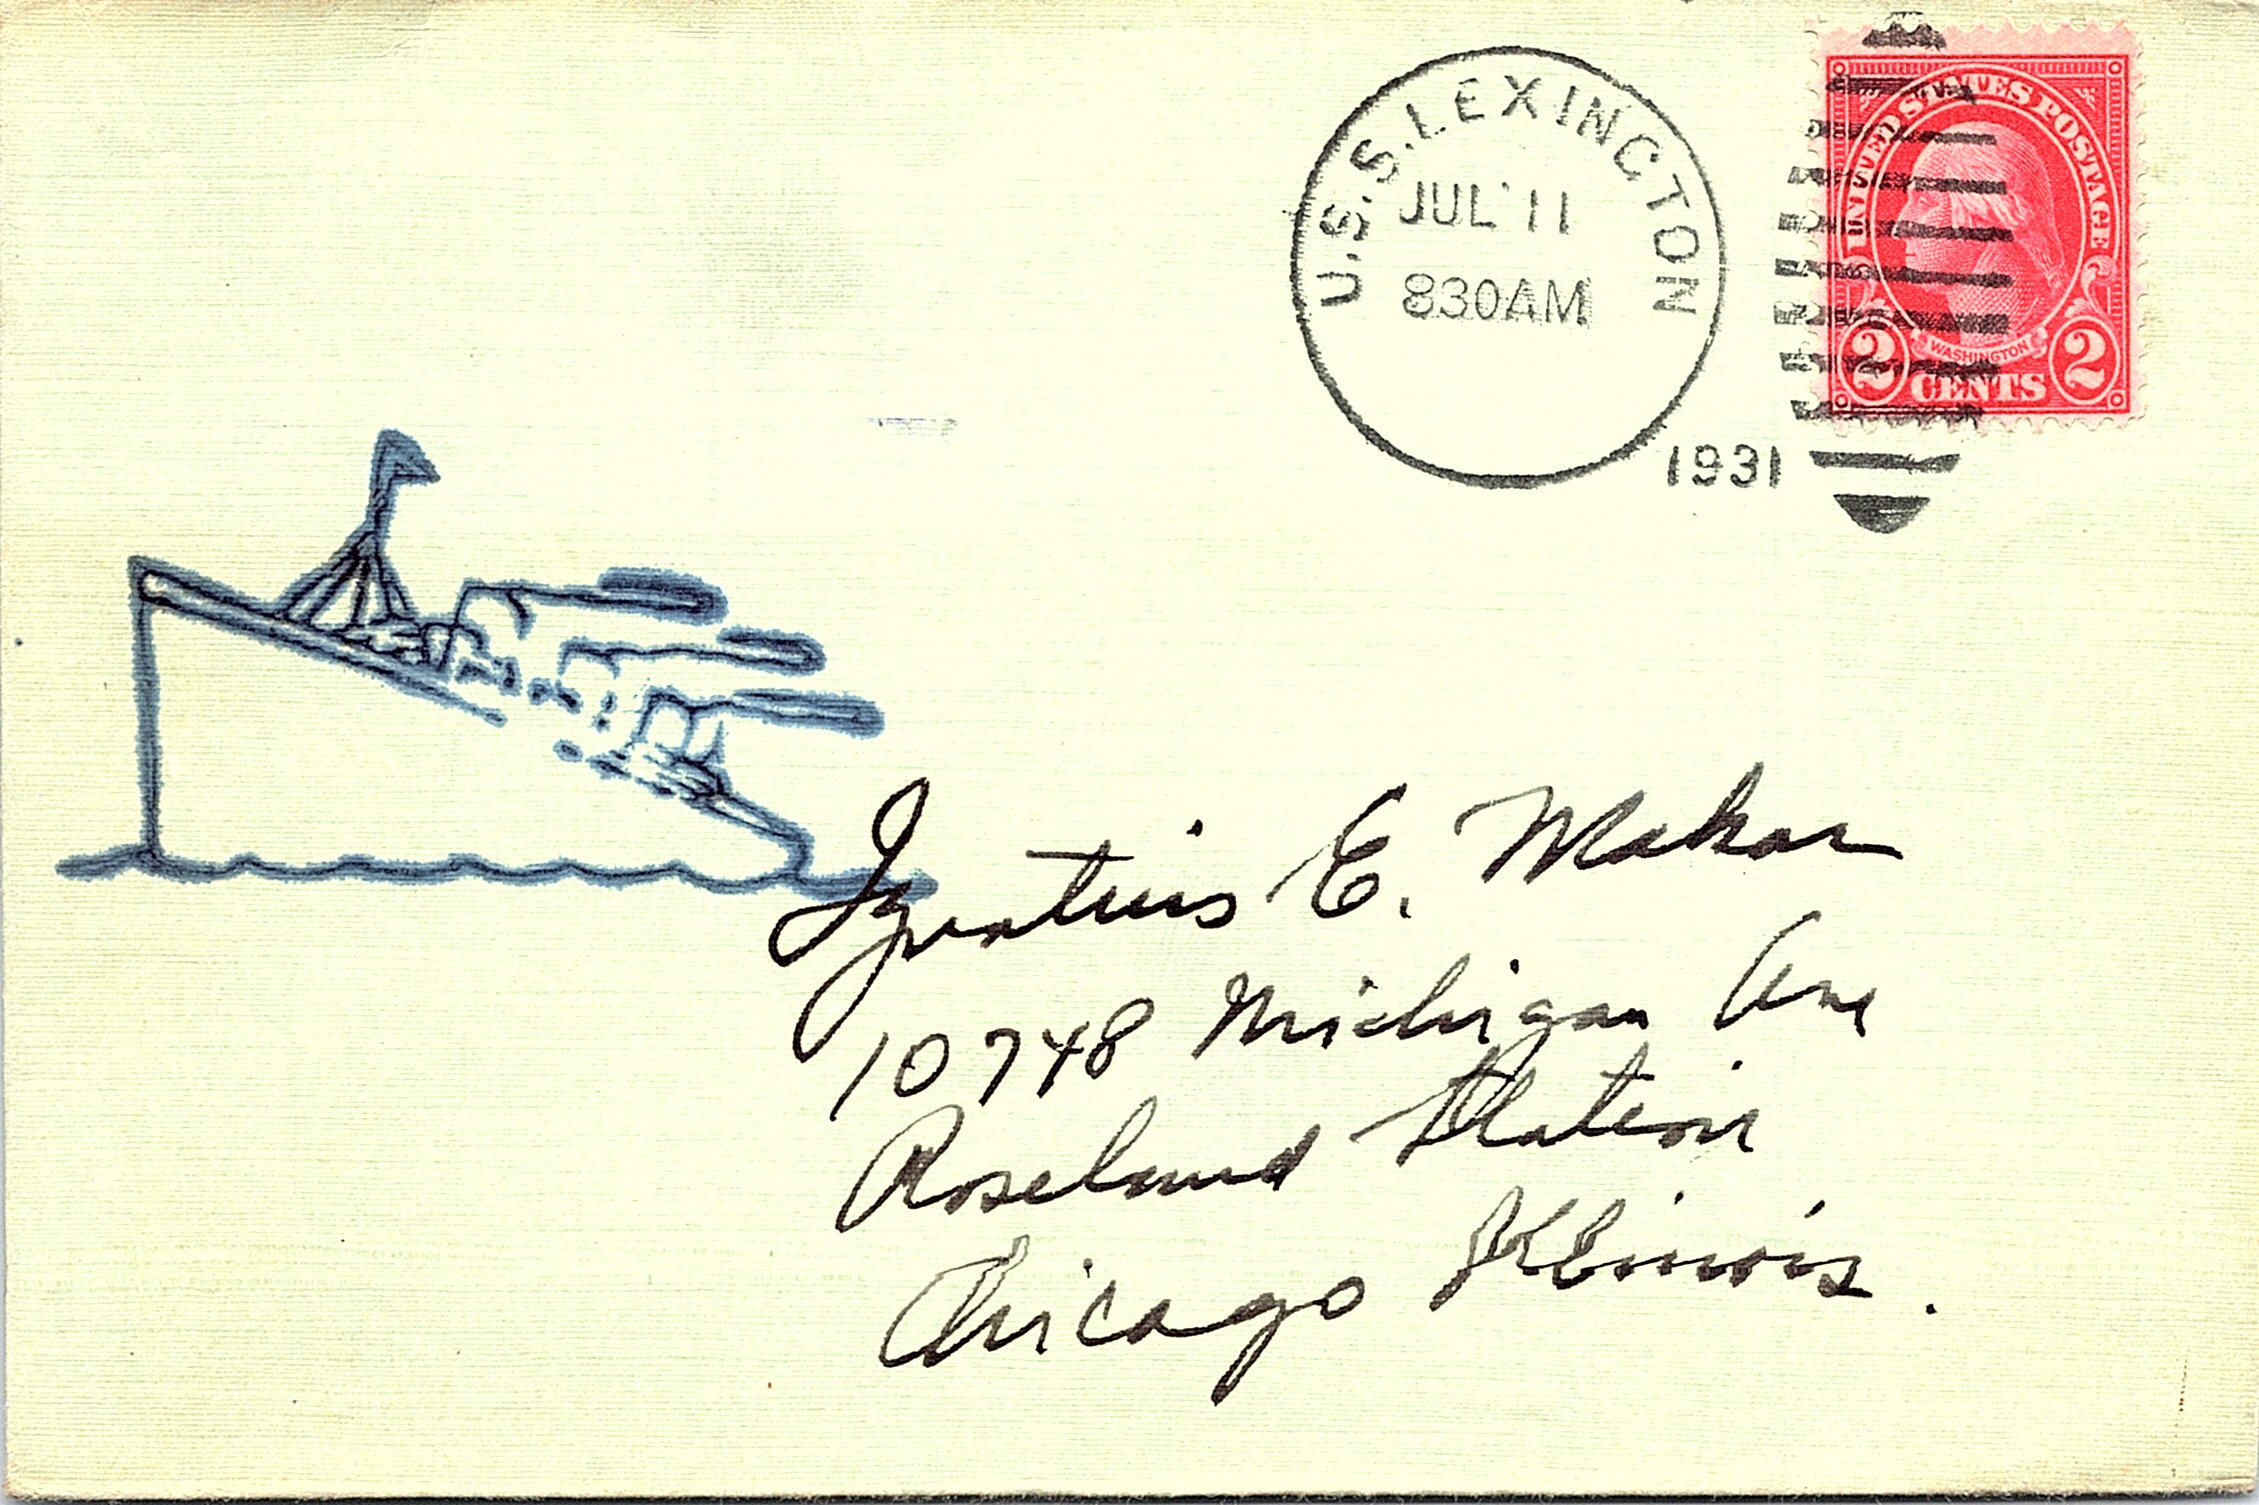 U.S.S. LEXINGTON
JUL 11
830AM
1931
UNITED STATES POSTAGE
WASHINGTON
2 CENTS 2
Ignatius E. Makar
10748 Michigan Ave
Roseland Station
Chicago Illinois.